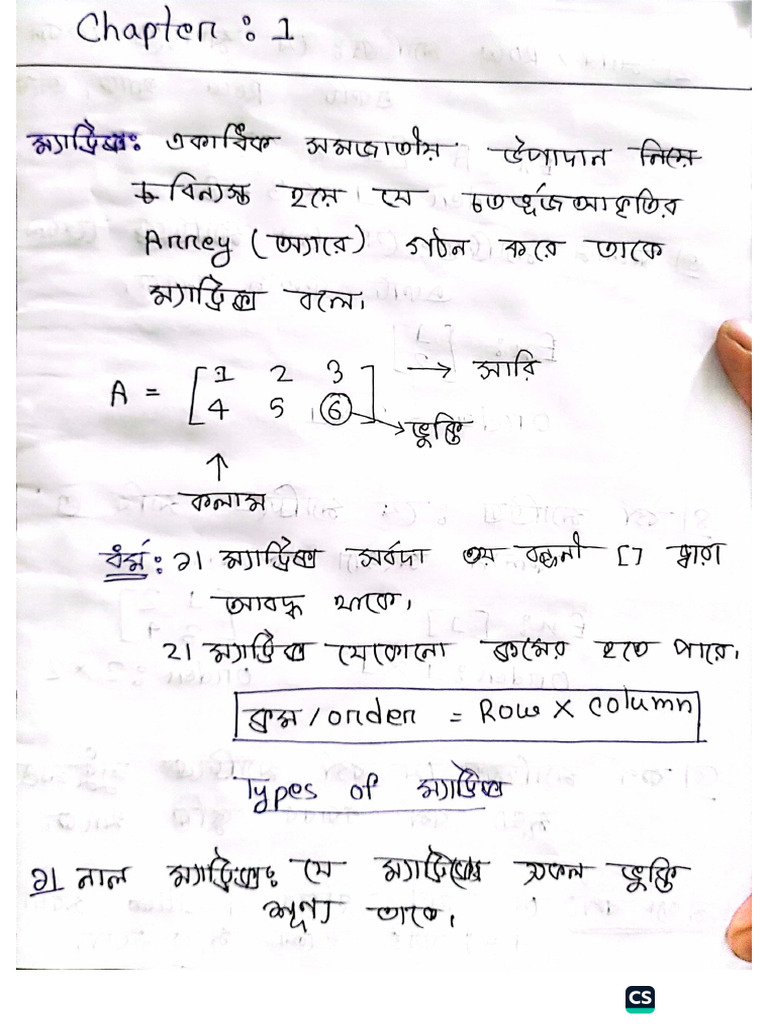 Chapter : 1
ম্যাট্রিক্স: একাধিক সমজাতীয় উপাদান নিয়ে
বিন্যস্ত হয়ে যে চতুর্ভূজ আকৃতির
Arrey (অ্যারে) গঠন করে তাকে
ম্যাট্রিক্স বলে।
A = [1 2 3 → সারি
4 5 6] → ভুক্তি
↑
কলাম
ধর্ম: ১। ম্যাট্রিক্স সর্বদা ৩য় বন্ধনী [] দ্বারা
আবদ্ধ থাকে।
২। ম্যাট্রিক্স যেকোনো ক্রমের হতে পারে।
ক্রম / order = Row × column
Types of ম্যাট্রিক্স
১। নাল ম্যাট্রিক্স: যে ম্যাট্রিক্সের সকল ভুক্তি
শূণ্য তাকে।
CS